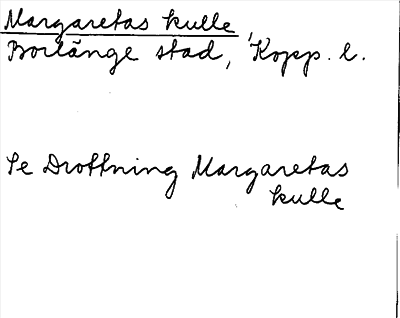 Margaretas kulle,
Borlänge stad, Kopp. l.
Se Drottning Margaretas
kulle